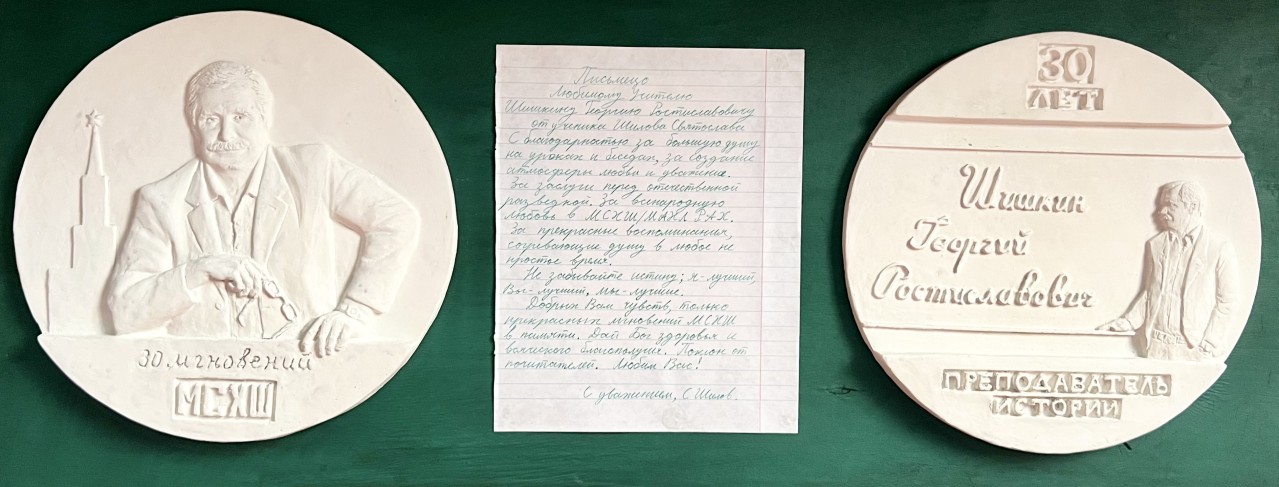 30 мгновений
МСХШ
Письмецо
Любимому Учителю
Шишкину Георгию Ростиславовичу
от ученика Шилова Святослава
С благодарностью за большую душу
на уроках и беседах, за создание
атмосферы любви и уважение.
За заслуги перед отечественной
разведкой. За всенародную
любовь в МСХШ/МАХЛ РАХ.
За прекрасные воспоминания,
согревающие душу в любое не
простое время.
Не забывайте истину; я-лучший,
Вы-лучший, мы-лучшие.
Добрых Вам чувств, только
прекрасных мгновений МСХШ
в памяти. Дай Бог здоровья и
всяческого благополучие. Поклон от
почитателей. Любим Вас!
С уважением, С Шилов.
30
ЛЕТ
Шишкин
Георгий
Ростиславович
ПРЕПОДАВАТЕЛЬ
ИСТОРИИ